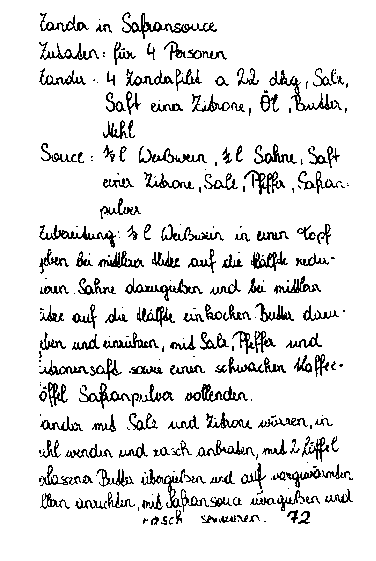 Zander in Safransouce
Zutaten: für 4 Personen
Zander: 4 Zanderfilet a 22 dkg, Salz,
Saft einer Zitrone, Öl, Butter,
Mehl
Souce: l Weißwein, l Sahne, Saft
einer Zitrone, Salz, Pfeffer, Safran-
pulver
Zubereitung: l Weißwein in einen Topf
geben bei mittlerer Hitze auf die Hälfte redu-
zieren Sahne dazugießen und bei mittlerer
Hitze auf die Hälfte einkochen Butter dazu-
geben und einrühren, mit Salz, Pfeffer und
Zitronensaft sowie einen schwachen Kaffee-
öffel Safranpulver vollenden.
ander mit Salz und Zitrone würzen, in
ehl wenden und rasch anbraten, mit 2 Löffel
Butter übergießen und auf vorgewärmten
anrichten, mit Safransouce übergießen und
rasch servieren. 72